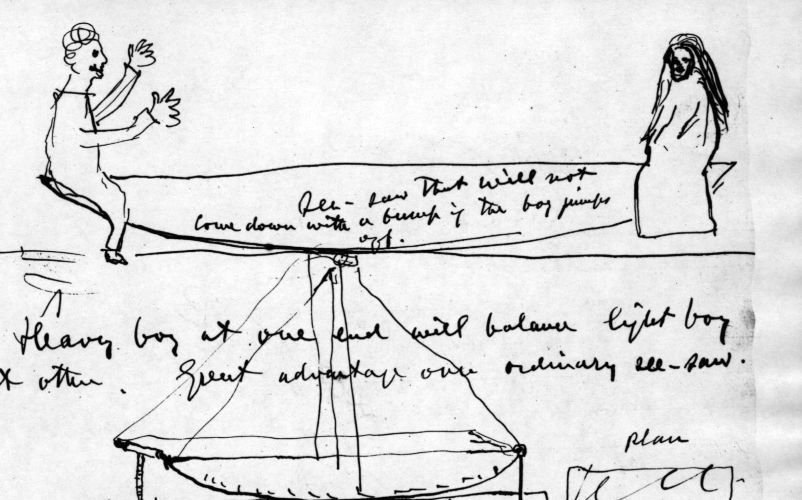 See-saw that will not
come down with a bump if the boy jumps
off.
Heavy boy at one end will balance light boy
at other. Great advantage over ordinary see-saw.
Plan